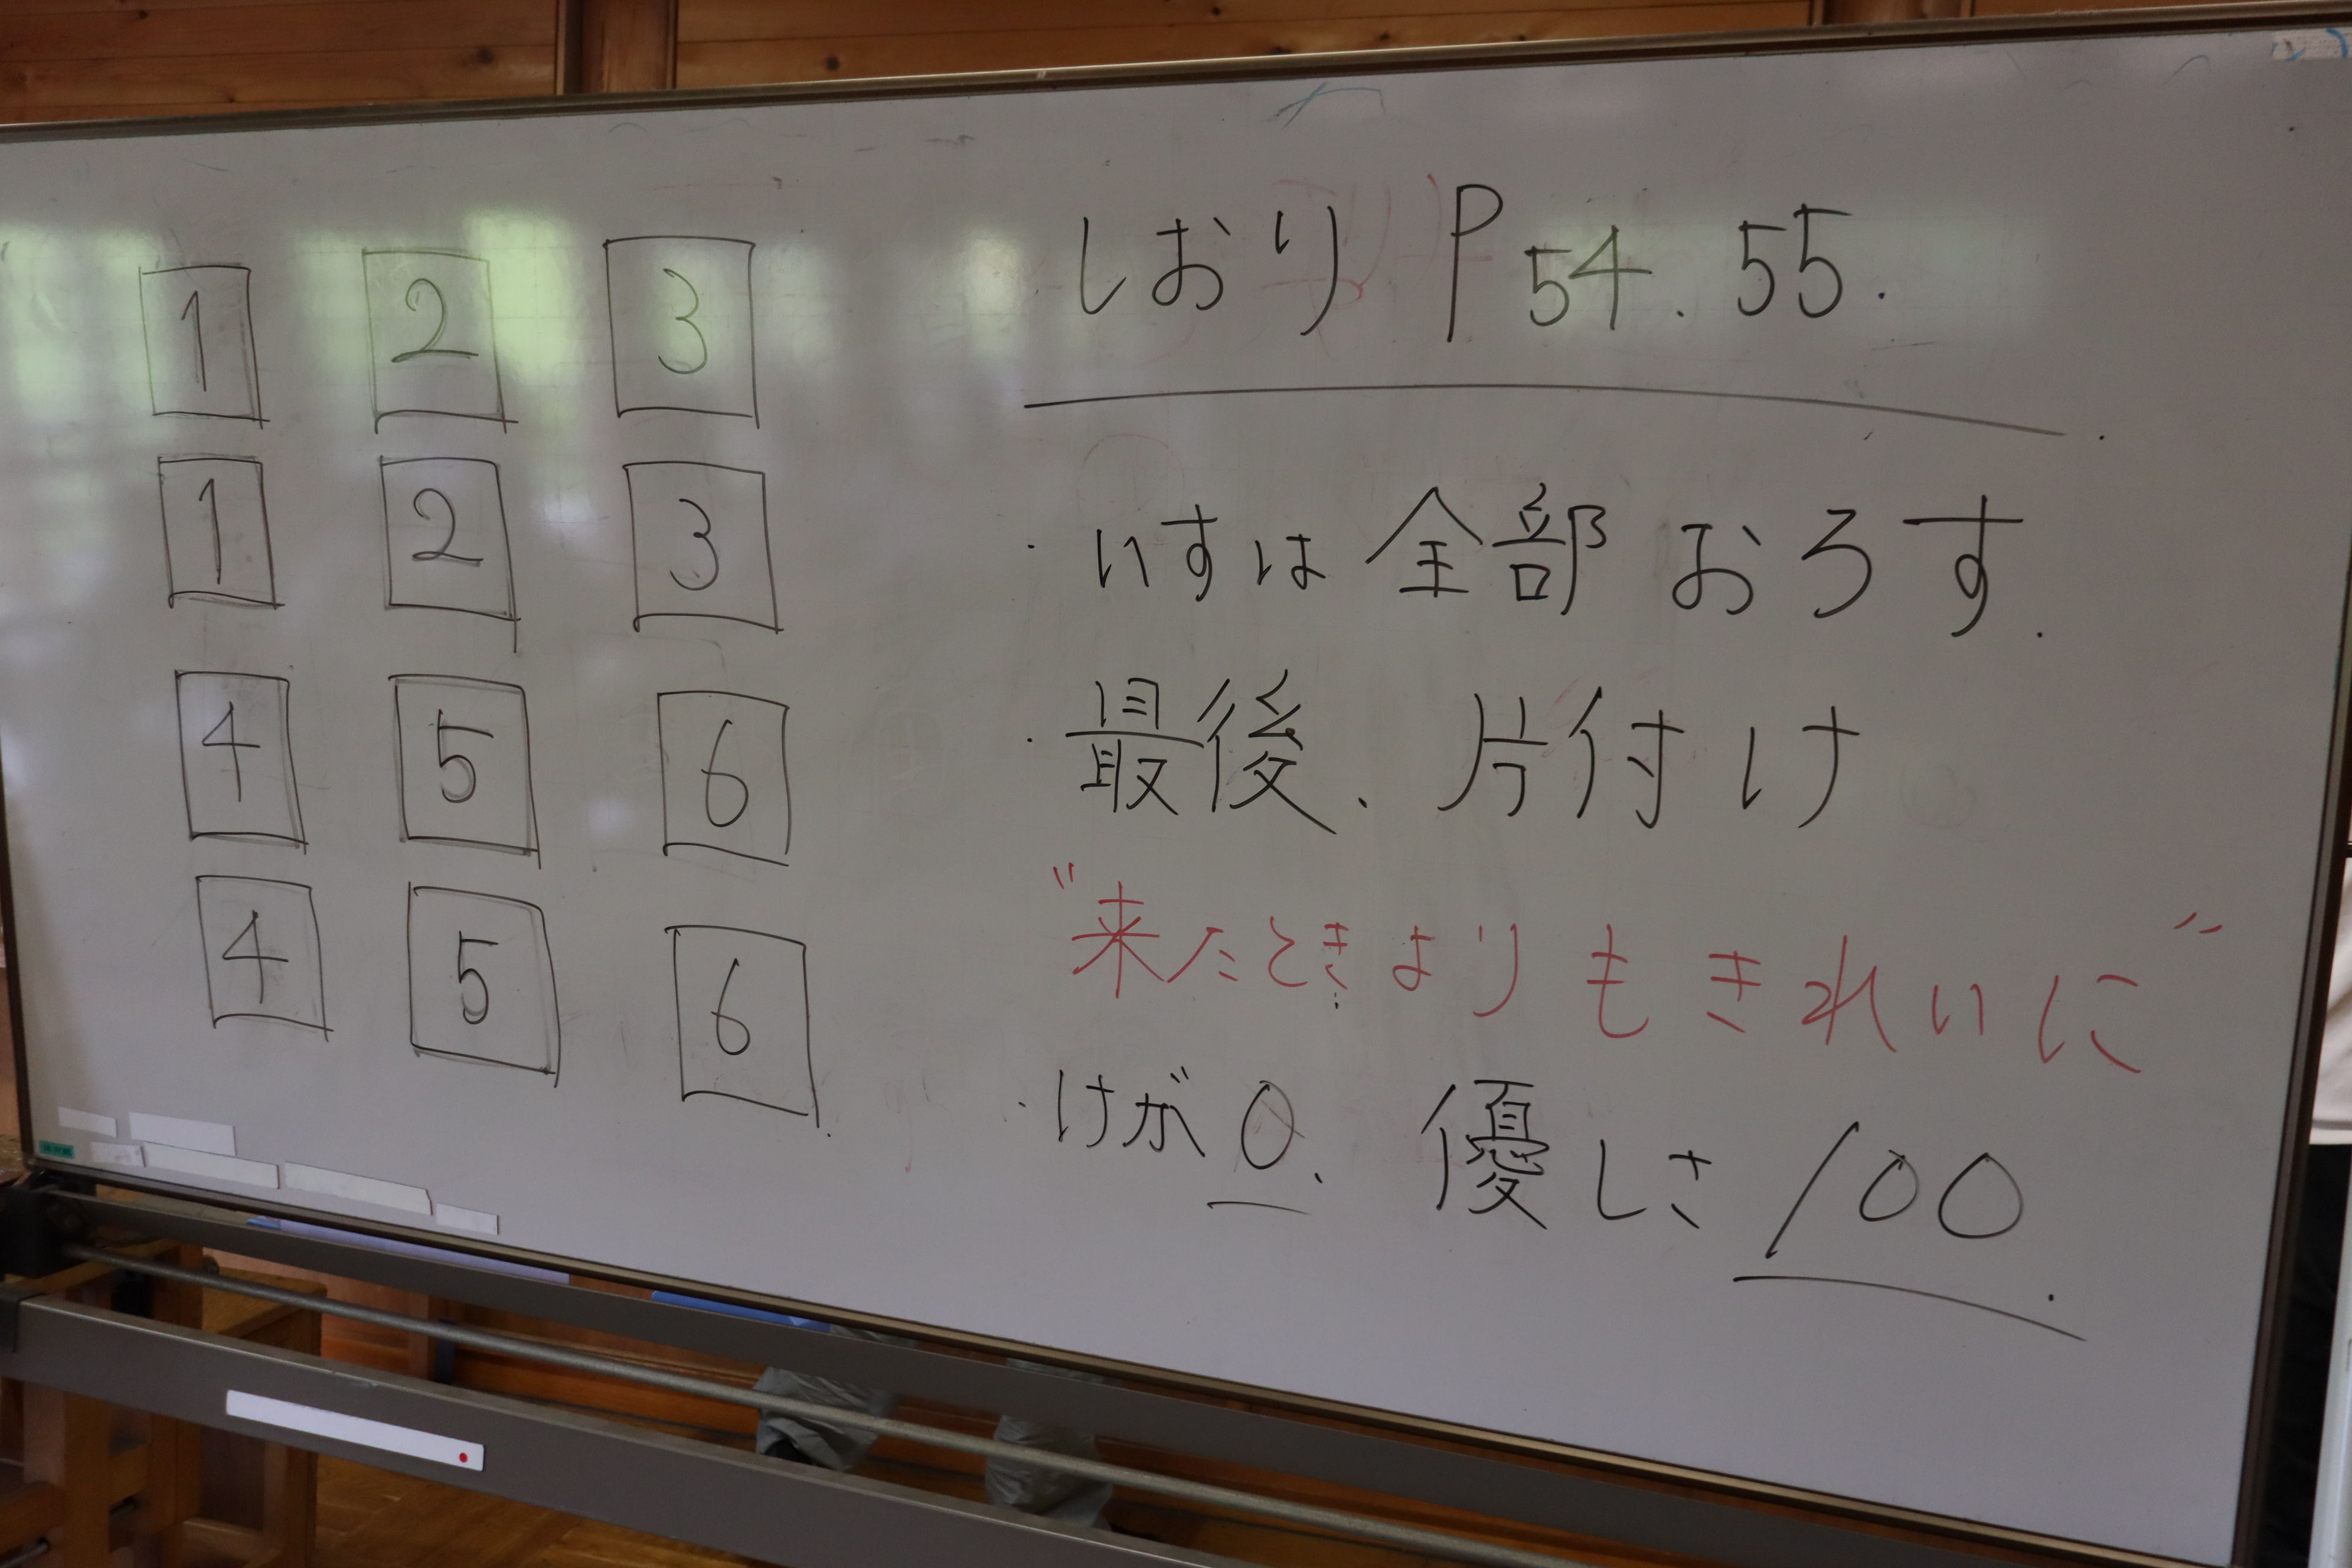 1 2 3
1 2 3
4 5 6
4 5 6
しおり P 54. 55.
・いすは 全部 おろす.
・最後、片付け
"来たときより もきれいに"
・けが 0、優しさ 100.